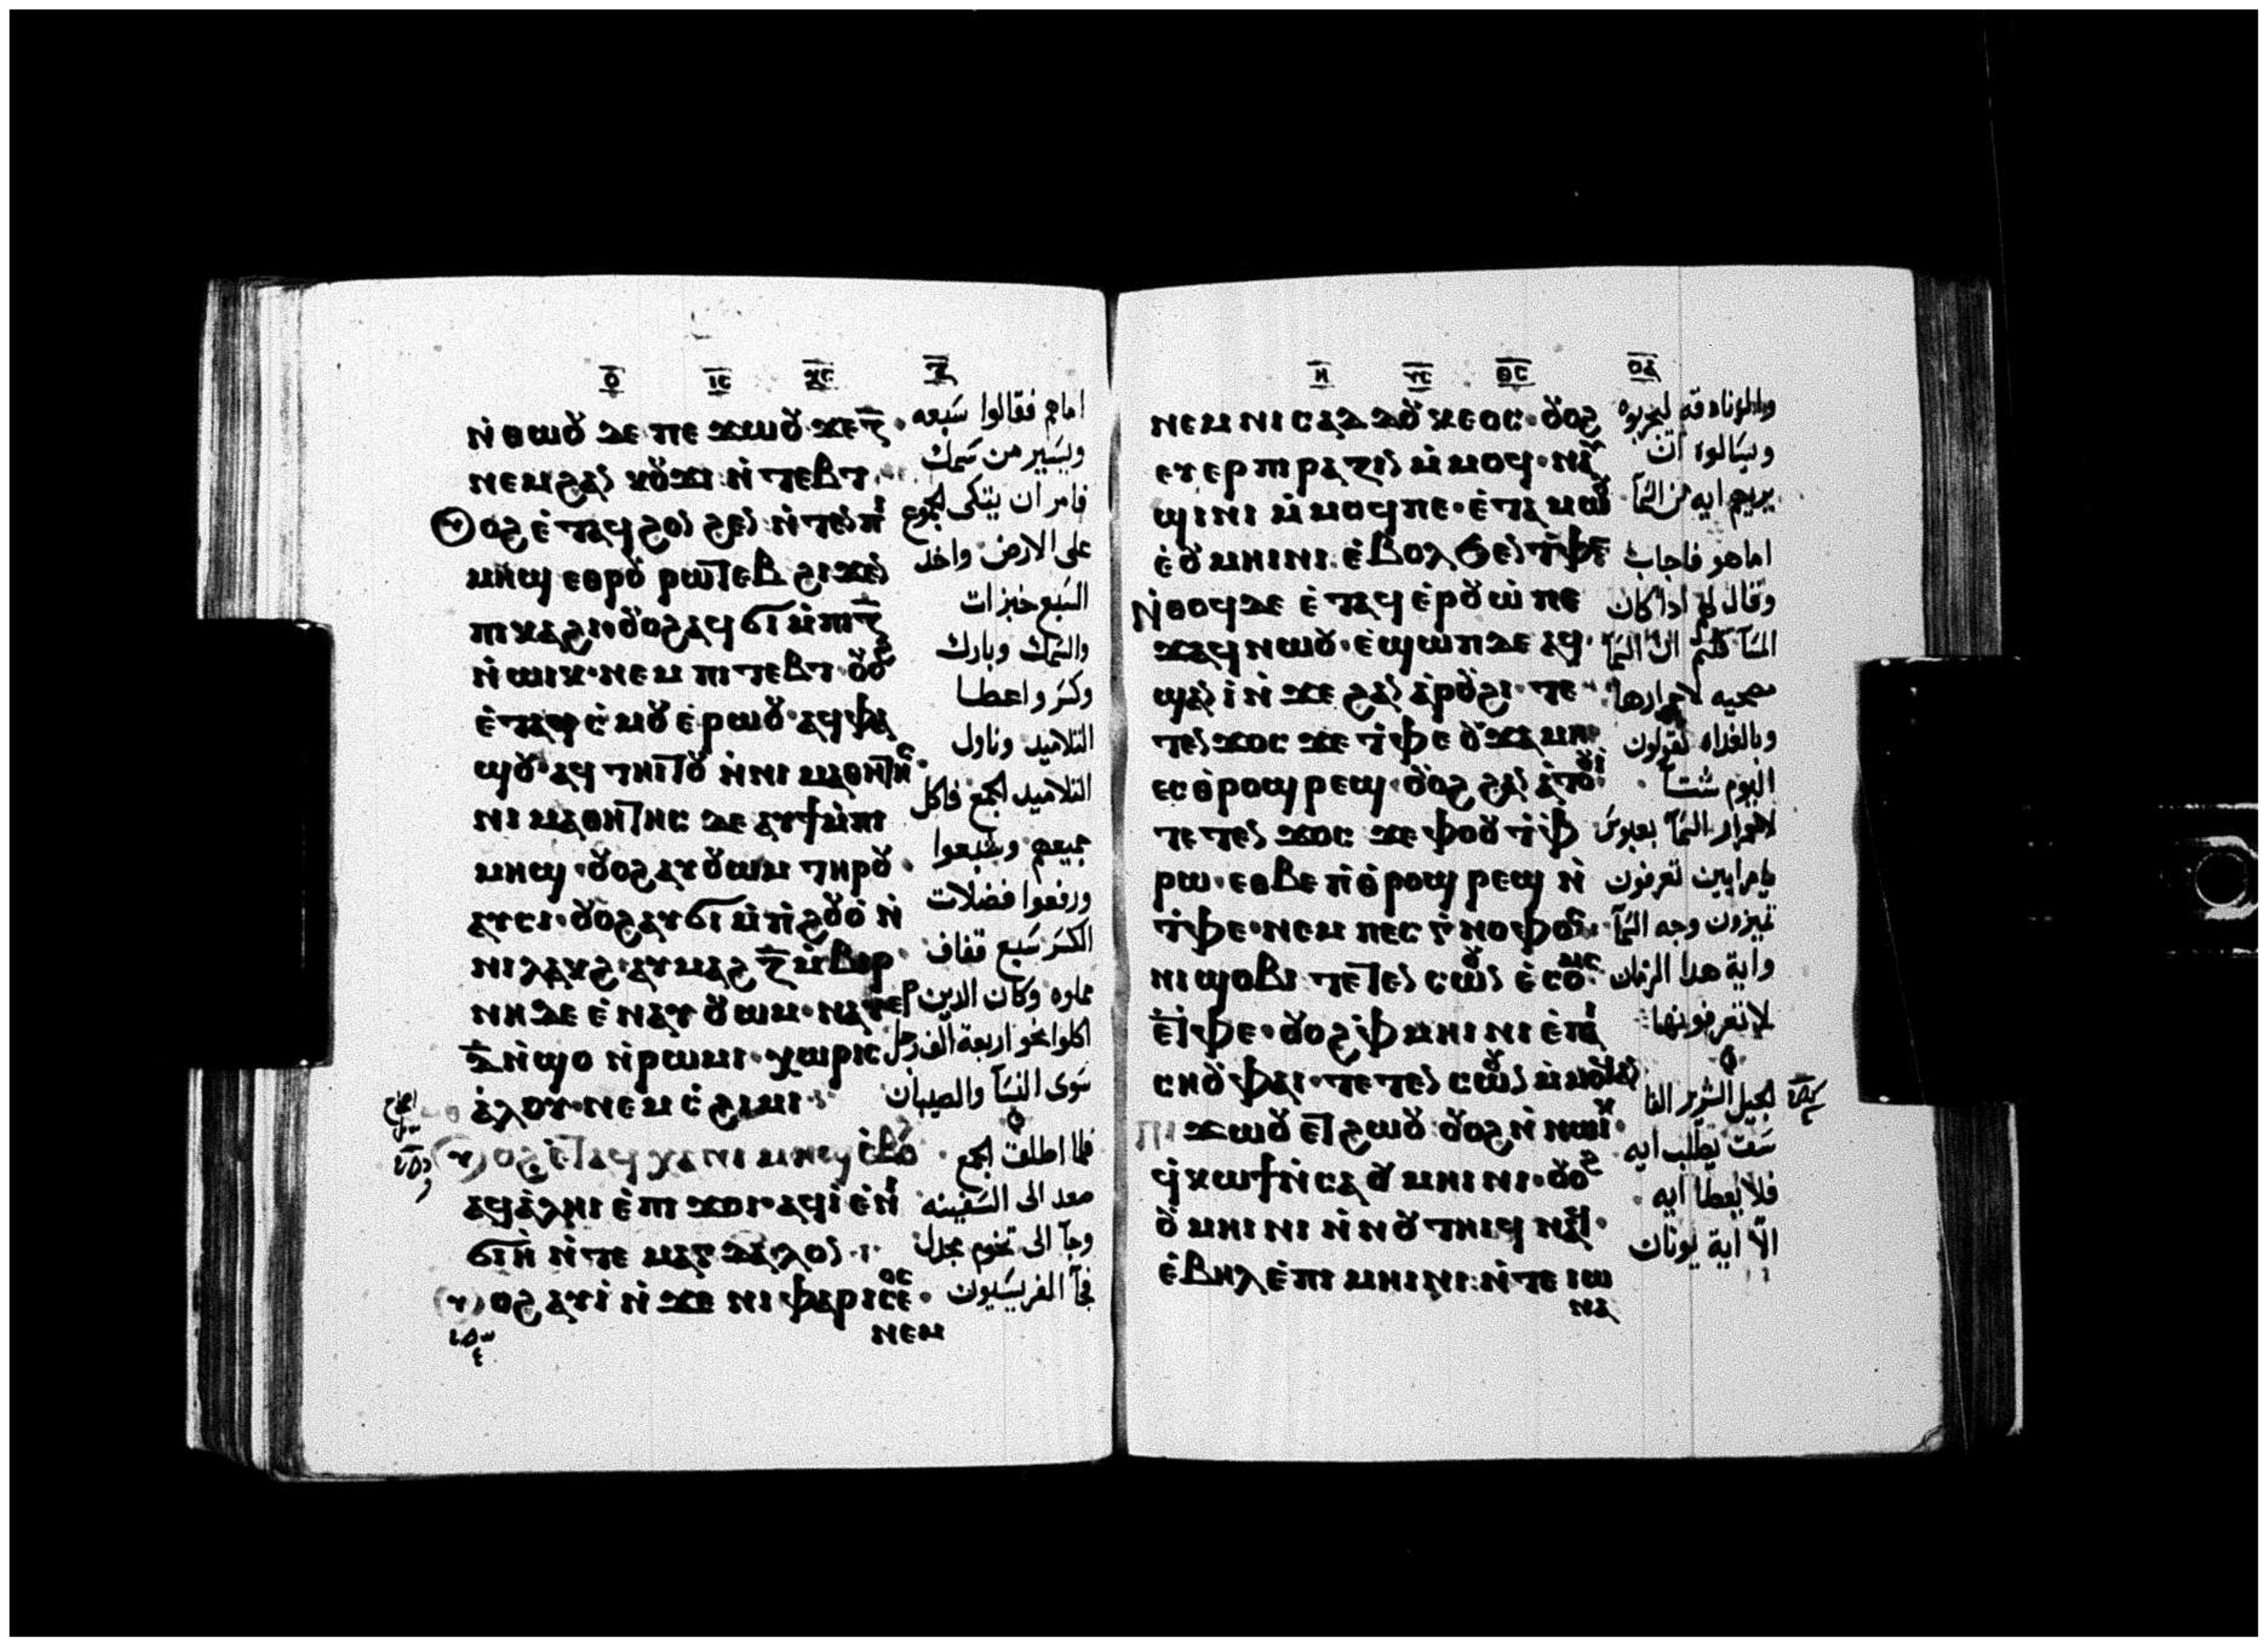 ⲟ̅ ⲓ̅ⲥ̅ ⲭ̅ⲥ̅ ⲍ̅
ⲛ̀ⲑⲱⲟⲩ ⲇⲉ ⲡⲉϫⲱⲟⲩ ϫⲉ ⲍ̅
ⲛⲉⲙ ϩⲁⲛ ⲕⲟⲩϫⲓ ⲛ̀ⲧⲉⲃⲧ
ⲟⲩⲟϩ ⲉ̀ⲧⲁϥϩⲟⲛϩⲉⲛ ⲛ̀ⲧⲉⲛⲡⲓ
ⲙⲏϣ ⲉⲑⲣⲟⲩⲣⲱⲧⲉⲃ ϩⲓϫⲉⲛ
ⲡⲓⲕⲁϩⲓ ⲟⲩⲟϩ ⲁϥϭⲓ ⲙ̀ⲡⲓⲍ̅
ⲛ̀ⲱⲓⲕ ⲛⲉⲙ ⲡⲓⲧⲉⲃⲧ ⲟⲩⲟϩ
ⲉ̀ⲧⲁϥⲥ̀ⲙⲟⲩ ⲉ̀ⲣⲱⲟⲩ ⲁϥⲫⲁ
ϣⲟⲩ ⲁϥⲧⲏⲓⲧⲟⲩ ⲛ̀ⲛⲓⲙⲁⲑⲏⲧⲏⲥ
ⲛⲓⲙⲁⲑⲏⲧⲏⲥ ⲇⲉ ⲁⲩϯ ⲙ̀ⲡⲓ
ⲙⲏϣ ⲟⲩⲟϩ ⲁⲩⲟⲩⲱⲙ ⲧⲏⲣⲟⲩ
ⲁⲩⲥⲓ ⲟⲩⲟϩ ⲁⲩϭⲓ ⲙ̀ⲡ̀ϩⲟⲩⲟ̀ ⲛ̀
ⲛⲓⲗⲁⲕϩ ⲁⲩⲙⲁϩ ⲍ̅ ⲙ̀ⲃⲓⲣ
ⲛⲏ ⲇⲉ ⲉ̀ⲛⲁⲩⲟⲩⲱⲙ ⲛⲁⲩⲉⲣ
ⲇ̅ ⲛ̀ϣⲟ ⲛ̀ⲣⲱⲙⲓ ⲭⲱⲣⲓⲥ
ⲁ̀ⲗⲟⲩ ⲛⲉⲙ ⲥ̀ϩⲓⲙⲓ
ⲟⲩⲟϩ ⲉ̀ⲧⲁϥⲭⲁ ⲛⲓⲙⲏϣ ⲉ̀ⲃⲟⲗ
ⲁϥⲁ̀ⲗⲏⲓ ⲉ̀ⲡⲓϫⲟⲓ ⲁϥⲓ̀ ⲉ̀ⲛⲓ
ϭⲓⲏ ⲛ̀ⲧⲉ ⲙⲁⲅⲇⲁⲗⲟⲛ
ⲟⲩⲟϩ ⲁⲩⲓ̀ ⲛ̀ϫⲉ ⲛⲓⲫⲁⲣⲓⲥⲉⲟⲥ
ⲛⲉⲙ
امام فقالوا سبعه
ويسير من سمك
فامر ان يتكى الجموع
على الارض واخذ
السبع خبزات
والسمك وبارك
وكسر واعطا
التلاميد وناول
التلاميد الجمع فاكل
جميعهم وشبعوا
ورفعوا فضلات
الكسر سبع قفاف
مملوه وكان الدين
اكلوا نحو اربعة الف رجل
سوى النسآ والصبيان
فلما اطلق الجمع
صعد الى السفينه
وجآ الى تخوم مجدل
فجآ الفريسيون
ⲏ̅ ⲩ̅ⲥ̅ ⲑ̅ⲥ̅ ⲟ̅ⲁ̅
ⲛⲉⲙ ⲛⲓⲥⲁⲇⲇⲟⲩⲕⲉⲟⲥ ⲟⲩⲟϩ
ⲉⲩⲉⲣⲡⲓⲣⲁⲍⲓⲛ ⲙ̀ⲙⲟϥ ⲛⲁⲩ
ϣⲓⲛⲓ ⲙ̀ⲙⲟϥ ⲡⲉ ⲉ̀ⲧⲁⲙⲱⲟⲩ
ⲉ̀ⲟⲩⲙⲏⲓⲛⲓ ⲉ̀ⲃⲟⲗϧⲉⲛ ⲧ̀ⲫⲉ
ⲛ̀ⲑⲟϥ ⲇⲉ ⲉ̀ⲧⲁϥⲉ̀ⲣⲟⲩⲱ̀ ⲡⲉ
ϫⲁϥ ⲛⲱⲟⲩ ⲉ̀ϣⲱⲡ ⲇⲉ ⲁϥ
ϣⲁⲛⲓ̀ ⲛ̀ϫⲉ ϩⲁⲛⲁ̀ⲣⲟⲩϩⲓ ⲧⲉ
ⲧⲉⲛϫⲟⲥ ϫⲉ ⲧ̀ⲫⲉ ⲟⲩϫⲁⲙⲏ
ⲉⲥⲑ̀ⲣⲟϣⲣⲉϣ ⲟⲩⲟϩ ϩⲁⲛⲁ̀ⲧⲟⲟⲩⲓ
ⲧⲉⲧⲉⲛϫⲟⲥ ϫⲉ ⲫⲟⲟⲩ ϯⲫ
ⲣⲱ ⲉⲑⲃⲉ ⲡ̀ⲑ̀ⲣⲟϣⲣⲉϣ ⲛ̀
ⲧ̀ⲫⲉ ⲛⲉⲙ ⲡⲉⲥⲅ̀ⲛⲟⲫⲟⲥ
ⲛⲓϣⲟⲃⲓ ⲧⲉⲧⲉⲛⲥⲱⲟⲩⲛ ⲉ̀ⲥⲟⲩⲙⲥ
ⲉ̀ⲧ̀ⲫⲉ ⲟⲩⲟϩ ⲫ̀ⲙⲏⲓⲛⲓ ⲉ̀ⲡⲓ
ⲥⲏⲟⲩ ⲫⲁⲓ ⲧⲉⲧⲉⲛⲥⲱⲟⲩⲛ ⲙ̀ⲙⲟϥ ⲁⲛ
ⲡⲓϫⲱⲟⲩ ⲉⲧϩⲱⲟⲩ ⲟⲩⲟϩ ⲛ̀ⲛⲱⲓⲕ
ϥ̀ⲕⲱϯ ⲛ̀ⲥⲁ ⲟⲩⲙⲏⲓⲛⲓ ⲟⲩⲟϩ
ⲟⲩⲙⲏⲓⲛⲓ ⲛ̀ⲛⲟⲩⲧⲏⲓϥ ⲛⲁϥ
ⲉ̀ⲃⲏⲗ ⲉ̀ⲡⲓⲙⲏⲓⲛⲓ ⲛ̀ⲧⲉ ⲓⲱ
ⲛⲁ
والزنادقه ليجربوه
وسالوه ان
يريهم ايه من السمآ
اما هو فاجاب
وقال لهم ادا كان
المسآ قلتم ان السمآ
مصحيه لاحمرارها
وبالغداه تقولون
اليوم شتا
لاحمرار السمآ بعبوس
يا مرايين تعرفون
تميزون وجه السمآ
واية هدا الزمان
لا تعرفونها
الجيل الشرير الفا
سق يطلب ايه
فلا يعطا ايه
الا اية يونان